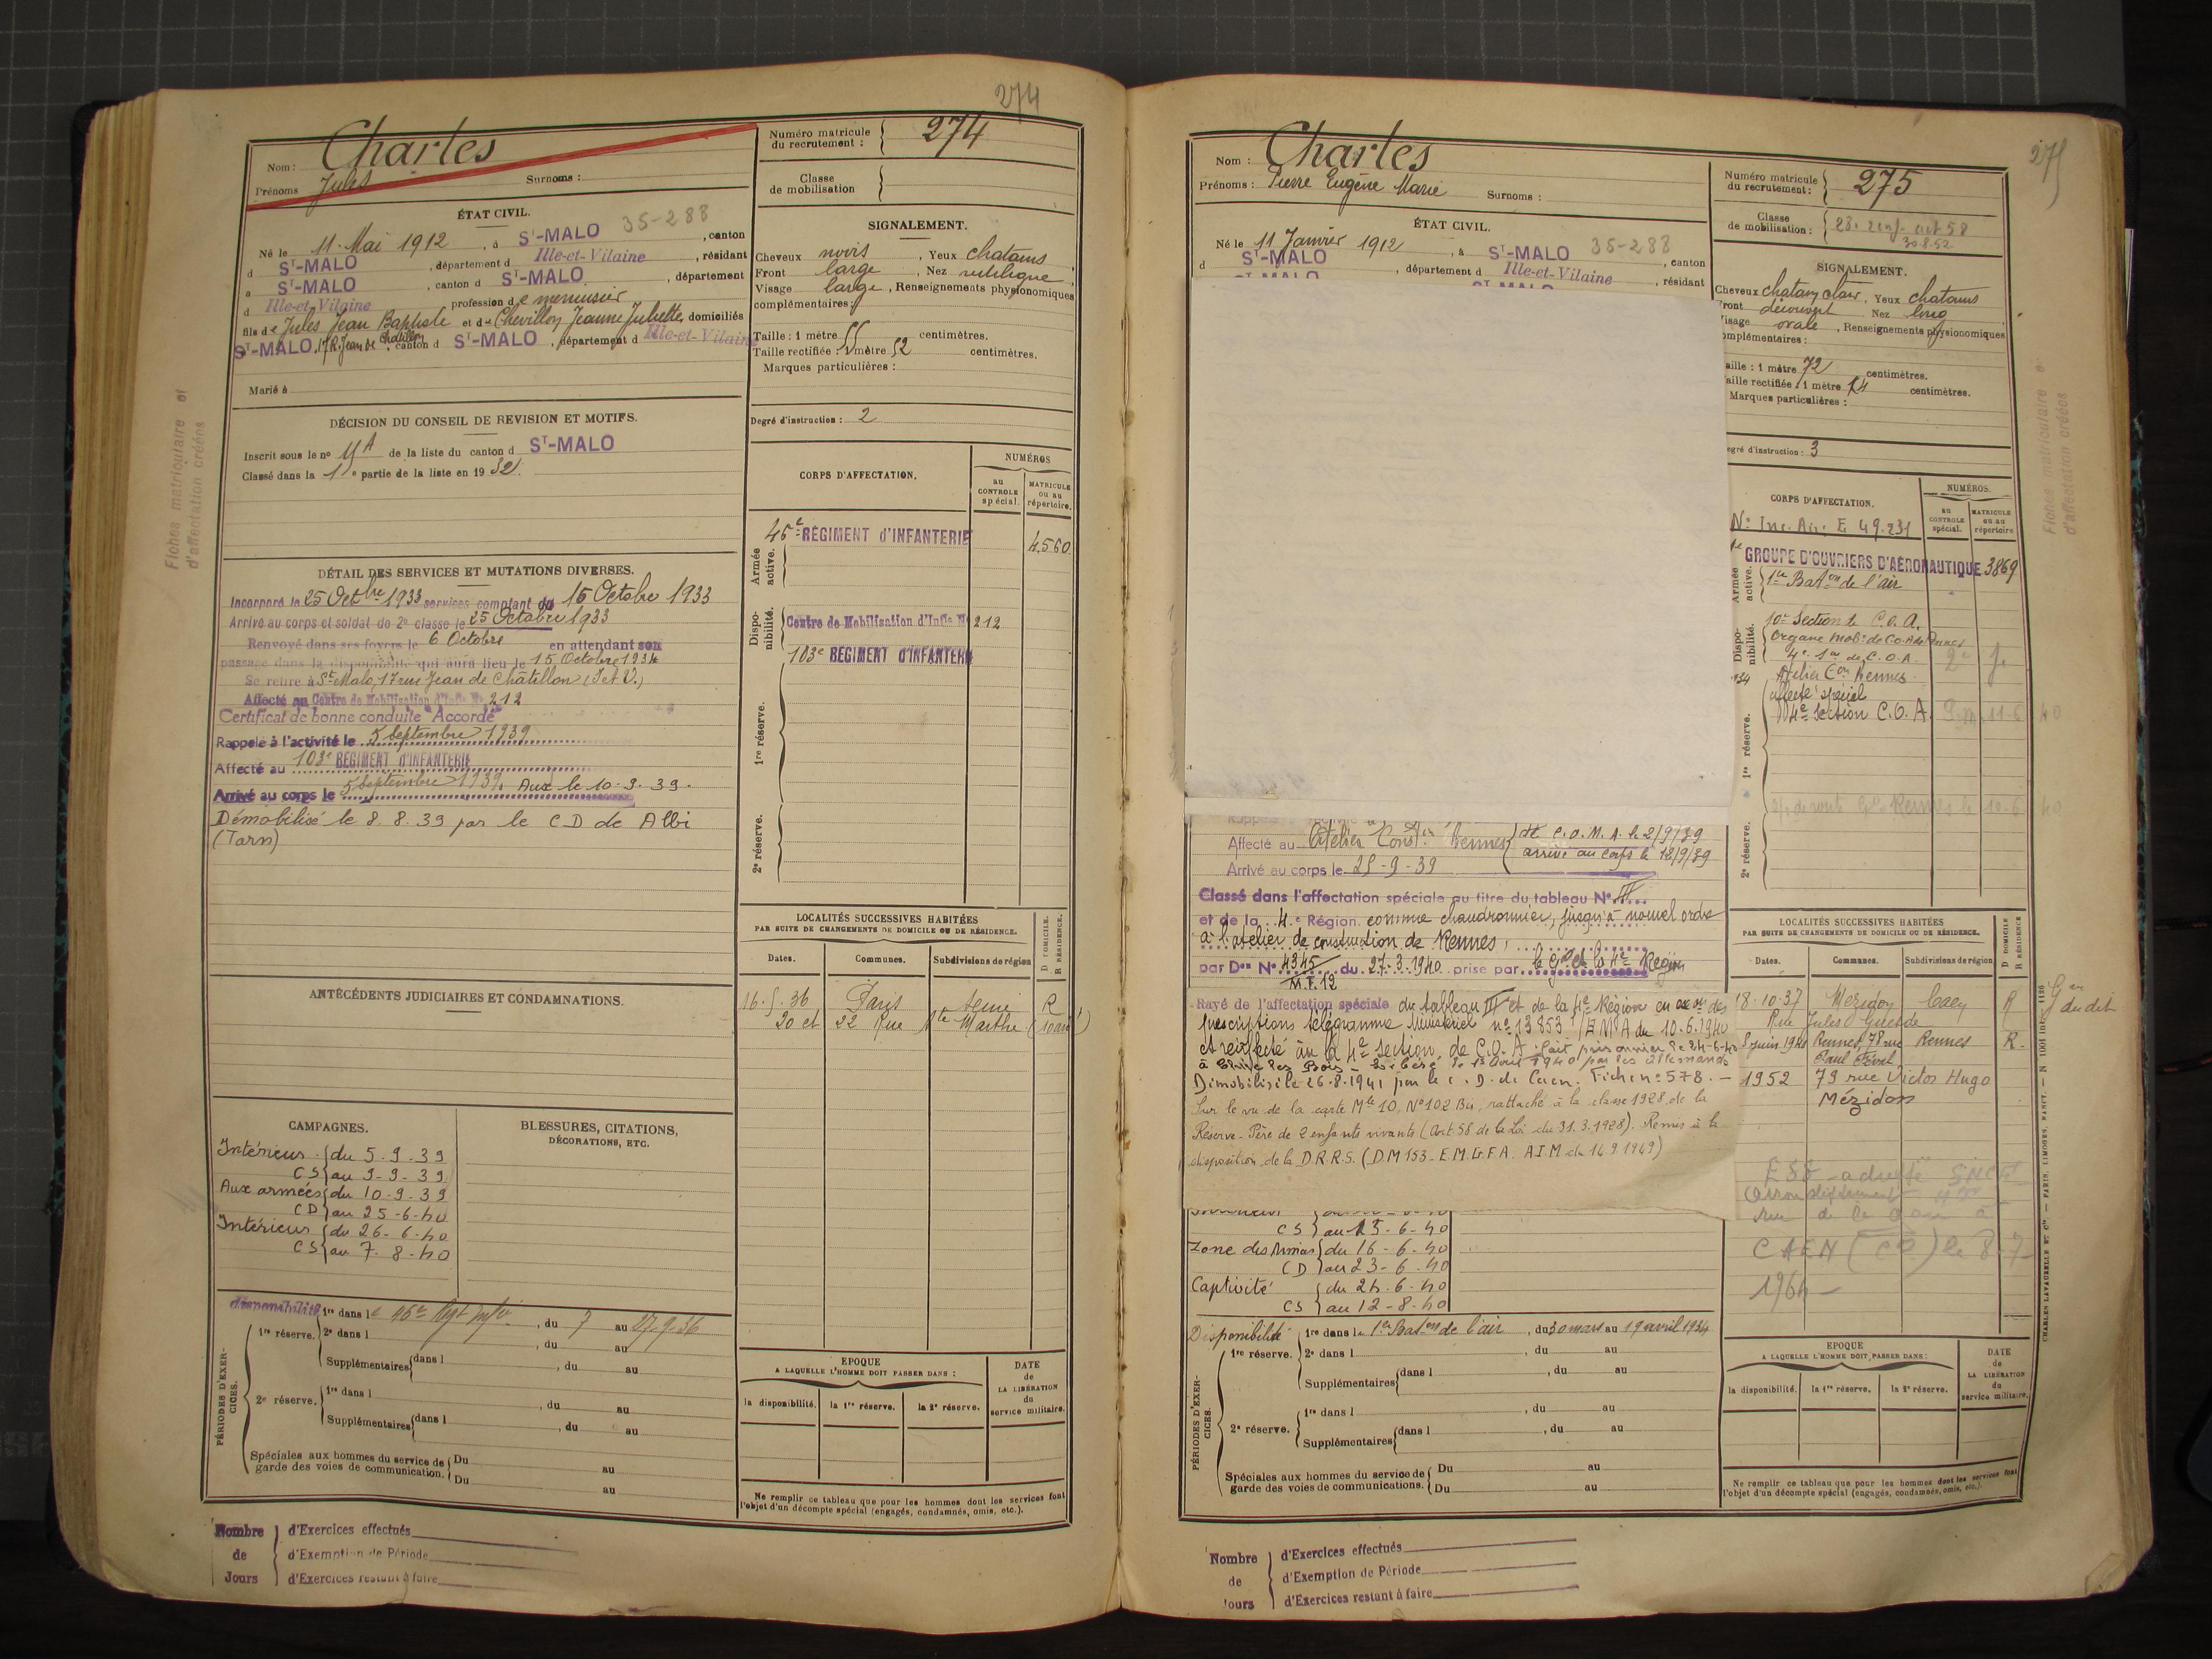 274
Nom : Charles
Prénoms Jules Surnoms :
Numéro matricule du recrutement : 274
Classe de mobilisation
ÉTAT CIVIL.
35-288
Né le 11 Mai 1912, à ST-MALO, canton
d ST-MALO, département d Ille-et-Vilaine, résidant
a ST-MALO, canton d ST-MALO, département
d Ille-et-Vilaine profession de menuisier
fils de Jules Jean Baptiste et de Chevillon Jeanne Juliette, domiciliés
ST-MALO, 17 R. Jean de Chatillon, canton d ST-MALO, département d Ille-et-Vilaine
Marié à
SIGNALEMENT.
Cheveux noirs, Yeux chatains
Front large, Nez rectiligne
Visage large, Renseignements physionomiques
complémentaires :
Taille : 1 mètre 55 centimètres.
Taille rectifiée : 1 mètre 52 centimètres.
Marques particulières :
Degré d'instruction : 2
DÉCISION DU CONSEIL DE REVISION ET MOTIFS.
Inscrit sous le no de la liste du canton d ST-MALO
Classé dans la 1re partie de la liste en 1932.
CORPS D'AFFECTATION.
NUMÉROS
au CONTROLE spécial.
MATRICULE ou au répertoire.
Armée active.
46e RÉGIMENT d'INFANTERIE 4560
Disponibilité.
Centre de Mobilisation d'Infie No 212
103e RÉGIMENT d'INFANTERIE
1re réserve.
2e réserve.
DÉTAIL DES SERVICES ET MUTATIONS DIVERSES.
Incorporé le 25 Octbre 1933 services comptant du 15 Octobre 1933
Arrivé au corps et soldat de 2e classe le 25 Octobre 1933
Renvoyé dans ses foyers le 6 Octobre en attendant son
passage dans la disponibilité qui aura lieu le 15 Octobre 1934
Se retire à St-Malo, 17 rue Jean de Châtillon (I. et V.)
Affecté au Centre de Mobilisation d'Infie No 212
Certificat de bonne conduite Accordé
Rappelé à l'activité le 5 Septembre 1939
Affecté au 103e RÉGIMENT d'INFANTERIE
Arrivé au corps le 5 Septembre 1939. Aux le 10-9-39.
Démobilisé le 8.8.39 par le C D de Albi
(Tarn)
LOCALITÉS SUCCESSIVES HABITÉES
PAR SUITE DE CHANGEMENTS DE DOMICILE OU DE RÉSIDENCE.
D DOMICILE. R RÉSIDENCE
Dates. Communes. Subdivisions de région
16.5.36 Paris Seine R
20 et 22 Rue Ste Marthe (10 arrt)
ANTÉCÉDENTS JUDICIAIRES ET CONDAMNATIONS.
CAMPAGNES.
Intérieur du 5.9.39
CS au 9.9.39
Aux armées du 10-9-39
CD au 25-6-40
Intérieur du 26-6-40
CS au 7-8-40
BLESSURES, CITATIONS, DÉCORATIONS, ETC.
PÉRIODES D'EXERCICES.
disponibilité
1re réserve. 1re dans le 46e Rgt Infie, du 7 au 27-9-36
2e dans l , du au
Supplémentaires dans l , du au
2e réserve. 1re dans l , du au
Supplémentaires dans l , du au
Spéciales aux hommes du service de garde des voies de communication. Du au
Du au
EPOQUE
A LAQUELLE L'HOMME DOIT PASSER DANS :
la disponibilité. la 1re réserve. la 2e réserve.
DATE de LA LIBÉRATION du service militaire.
Ne remplir ce tableau que pour les hommes dont les services font
l'objet d'un décompte spécial (engagés, condamnés, omis, etc.).
Nombre de Jours
d'Exercices effectués
d'Exemption de Période
d'Exercices restant à faire
Fiches matriculaire et
d'affectation créées
275
Nom : Charles
Prénoms : Pierre Eugène Marie Surnoms :
Numéro matricule du recrutement : 275
Classe de mobilisation : 28. 2 enf. art 58
30.8.52
ÉTAT CIVIL.
35-288
Né le 11 Janvier 1912, à ST-MALO, canton
d ST-MALO, département d Ille-et-Vilaine, résidant
SIGNALEMENT.
Cheveux chatain clair, Yeux chatains
Front découvert Nez long
Visage ovale, Renseignements physionomiques
complémentaires :
Taille : 1 mètre 72 centimètres.
Taille rectifiée : 1 mètre 74 centimètres.
Marques particulières :
Degré d'instruction : 3
CORPS D'AFFECTATION.
NUMÉROS.
au CONTROLE spécial.
MATRICULE ou au répertoire
No Inc. Air. E 49.231
Armée active.
GROUPE D'OUVRIERS D'AÉRONAUTIQUE 3869
1er Baton de l'air
Disponibilité.
10e Section de C.O.A.
Organe mobr de C.O.A. de Rennes
4e Son de C.O.A.
Atelier Con Rennes
affecté spécial
4e Section C.O.A.
1re réserve.
2e réserve.
Affecté au Atelier Const. Rennes dt C.O.M.A. le 2/9/39
arrivé au corps le 18/9/39
Arrivé au corps le 25-9-39
Classé dans l'affectation spéciale au titre du tableau No III
et de la 4e Région comme chaudronnier, jusqu'à nouvel ordre
à l'atelier de construction de Rennes,
par Don No 4345 M.T.12 du 27.3.1940 prise par le Gal Ct la 4e Région
Rayé de l'affectation spéciale du tableau III et de la 4e Région en des
prescriptions télégramme Ministériel no 13853 /EMA du 10.6.1940
et réaffecté à la 4e Section de C.O.A. Fait prisonnier le 24-6-40
Démobilisé le 26.8.1941 par le C.D. de Caen. Fiche no 578.
Sur le vu de la carte Mle 10, No 102 Bis, rattaché à la classe 1928 de la
Réserve - Père de 2 enfants vivants (Art 58 de la Loi du 31.3.1928). Remis à la
disposition de la D.R.R.S. (DM 153 - E.M.G.F.A. A.I.M du 14.9.1949)
LOCALITÉS SUCCESSIVES HABITÉES
PAR SUITE DE CHANGEMENTS DE DOMICILE OU DE RÉSIDENCE.
D DOMICILE R RÉSIDENCE
Dates. Communes. Subdivisions de région
18.10.37 Mezidon Caen R
Rue Jules Guesde
8 juin 1940 Rennes, 78 rue Rennes R.
Paul Féval
1952 79 rue Victor Hugo
Mézidon
CAEN
1964
CS au 15-6-40
Zone des Armées du 16-6-40
CD au 23-6-40
Captivité du 24-6-40
CS au 12-8-40
PÉRIODES D'EXERCICES.
Disponibilité
1re réserve. 1re dans le 1er Baton de l'air, du 30 mars au 19 avril 1934
2e dans l , du au
Supplémentaires dans l , du au
2e réserve. 1re dans l , du au
Supplémentaires dans l , du au
Spéciales aux hommes du service de garde des voies de communications. Du au
Du au
EPOQUE
A LAQUELLE L'HOMME DOIT PASSER DANS :
la disponibilité. la 1re réserve. la 2e réserve.
DATE de LA LIBÉRATION du service militaire.
Ne remplir ce tableau que pour les hommes dont les services font
l'objet d'un décompte spécial (engagés, condamnés, omis, etc.).
Nombre de Jours
d'Exercices effectués
d'Exemption de Période
d'Exercices restant à faire
Fiches matriculaire
d'affectation créées